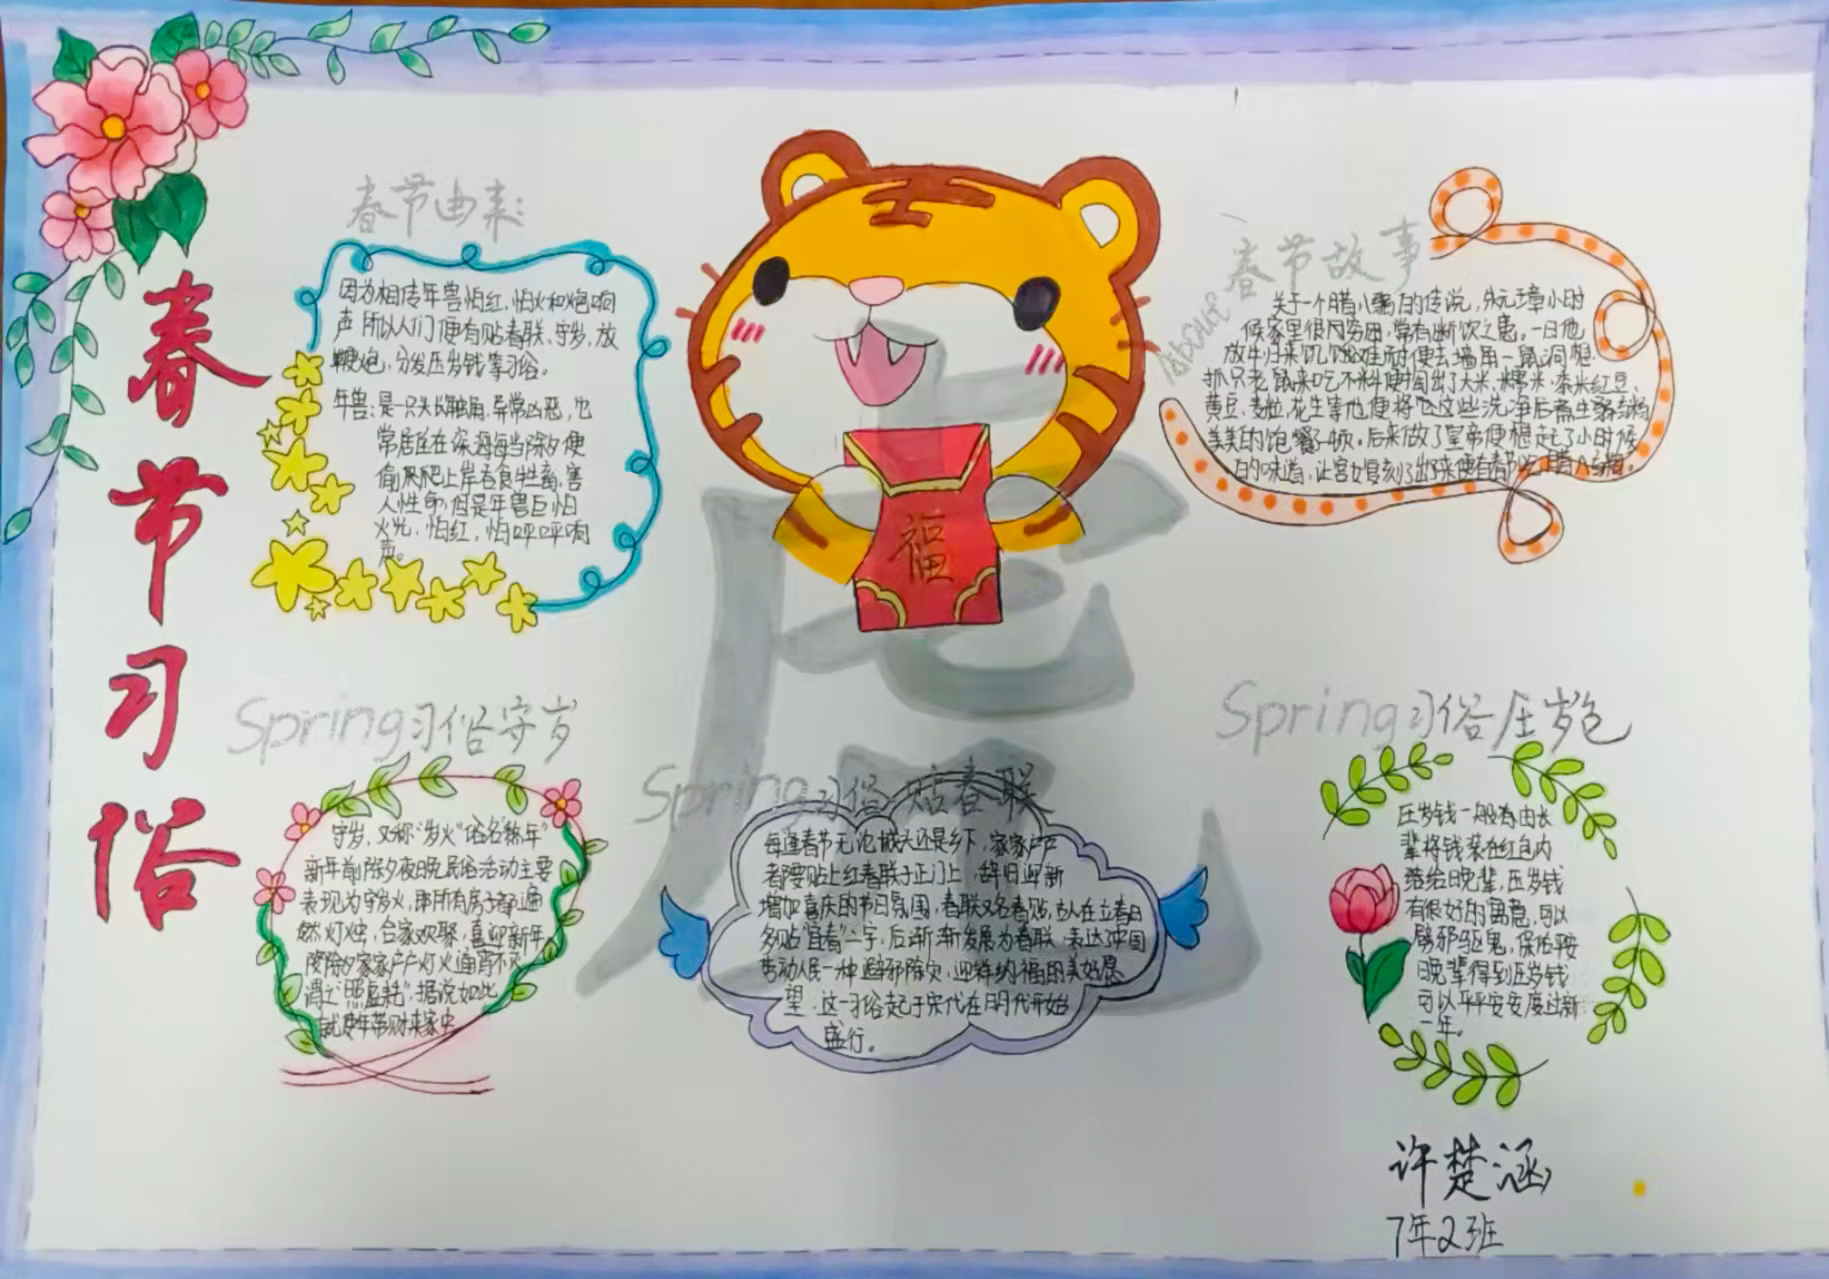 春节习俗
春节由来:
因为相传年兽怕红,怕火和炮响
声 所以人们便有贴春联、守岁,放
鞭炮,分发压岁钱等习俗。
年兽:是一只头长触角,异常凶恶,它
常居住在深海每当除夕便
偷爬上岸吞食牲畜,害
人性命,但是年兽巨怕
火光,怕红,怕呯呯响
声。
福
虎
about
春节故事
关于一个腊八粥的传说,朱元璋小时
候家里很穷困,常有断饮之患。一日他
放牛归来饥饿难耐便去墙角一鼠洞想
抓只老鼠来吃不料便掏出了大米、糯米、泰米红豆、
黄豆、麦粒,花生等他便将这些洗净后
美美的饱餐了一顿。后来做了皇帝便想起了小时候
的味道,让宫女
Spring习俗守岁
守岁,又称"岁火"俗名"熬年"
新年前除夕夜晚民俗活动主要
表现为守岁火,即所有房子都遍
燃灯烛,合家欢聚,喜迎新年
除夕家家户户灯火通宵不
谓之"照虚耗",据说如此
就使年带财来家中
Spring习俗 贴春联
每逢春节无论城头还是乡下,家家户户
都要贴上红春联于正门上,辞旧迎新
增加喜庆的节日氛围,春联又名春贴,古人在立春日
多贴"宜春"二字,后渐渐发展为春联,表达了中国
劳动人民一种避邪除灾,迎祥纳福的美好愿
望,这一习俗起于宋代在明代开始
盛行。
Spring习俗压岁包
压岁钱一般为由长
辈将钱装在红包内
给晚辈,压岁钱
有很好的寓意,可以
辟邪驱鬼,保佑平安
晚辈得到压岁钱
可以平平安安度过新
一年。
许楚涵
7年2班